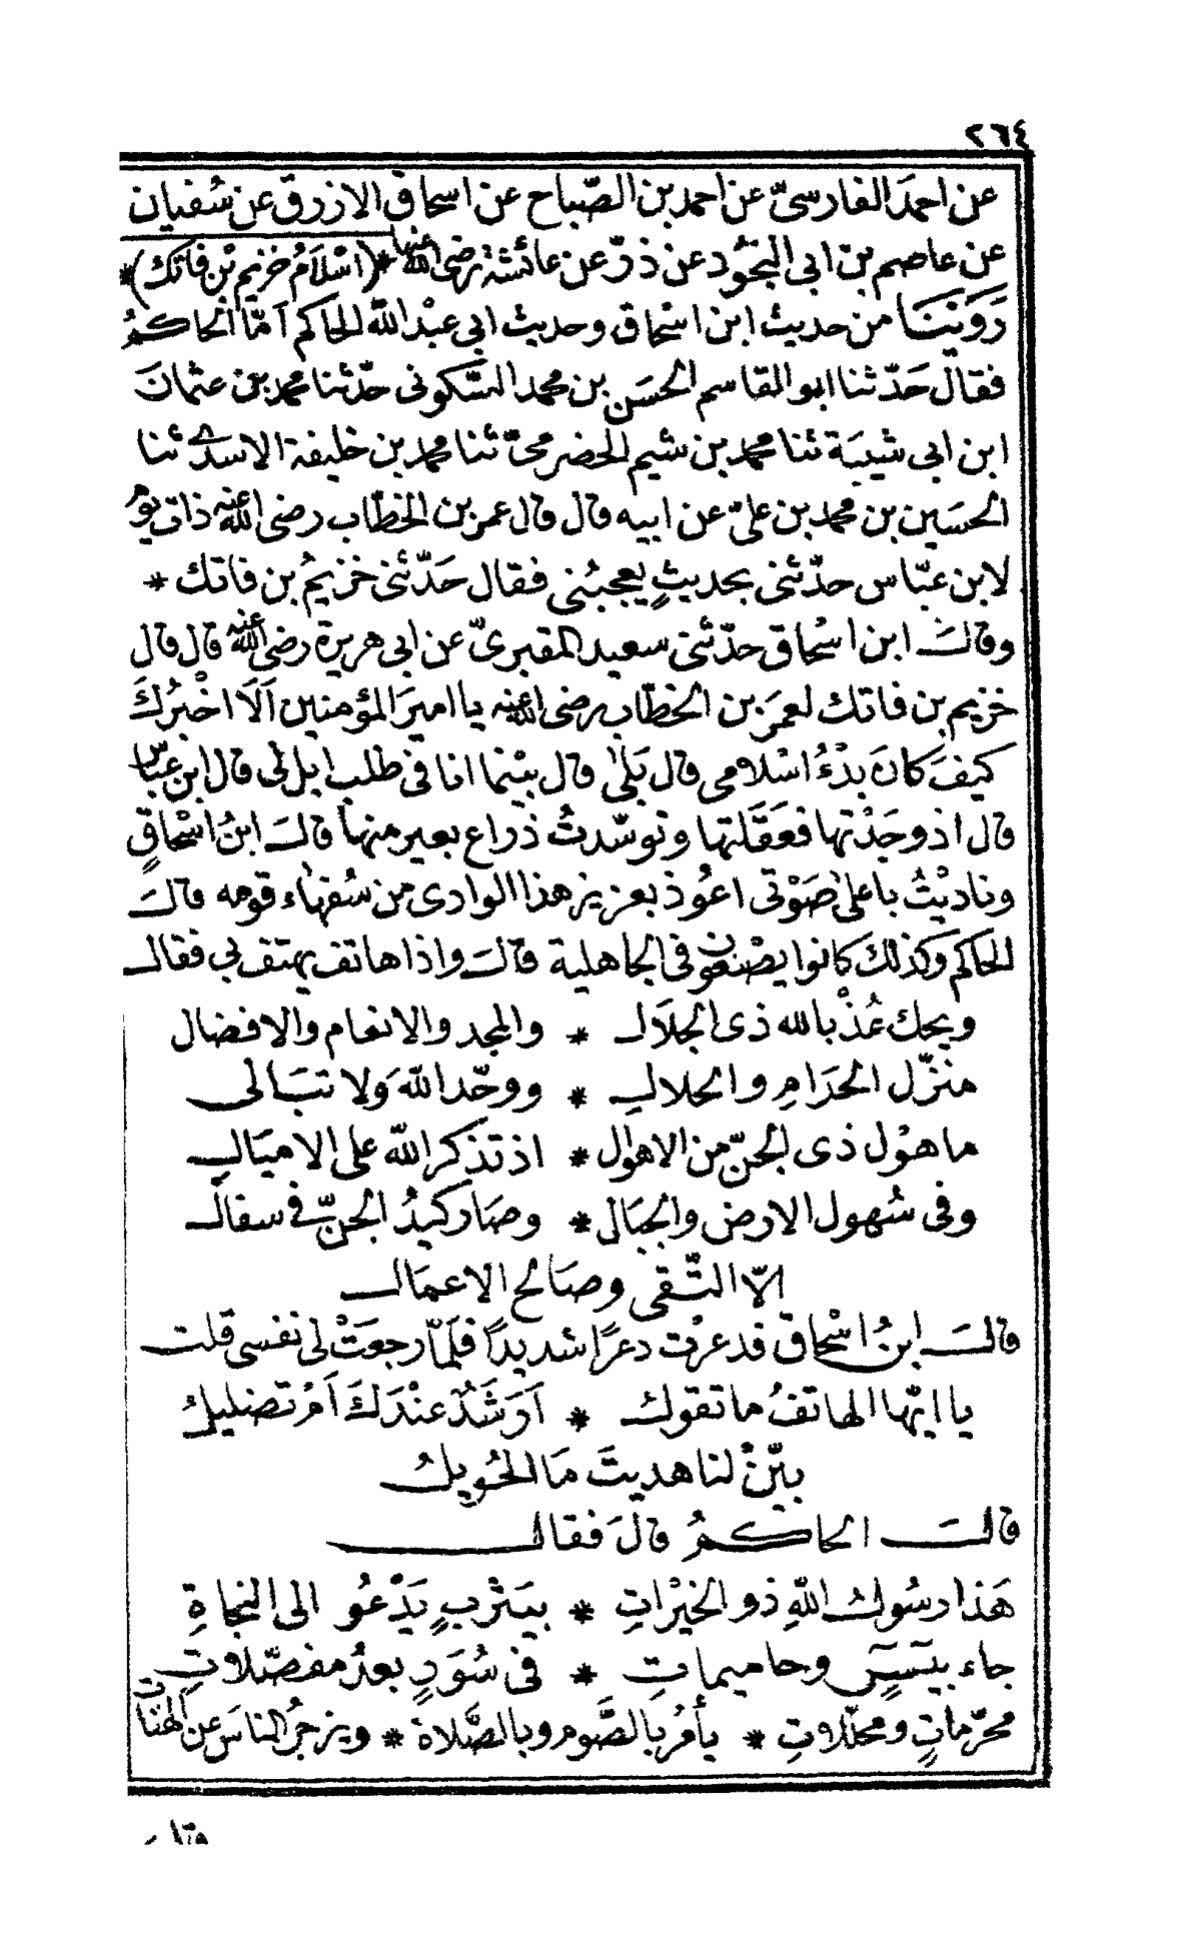 ٢٦٤
عن احمَد الفارسىّ عن احمد بن الصّباح عن اسحاق الازرق عن سُفيان
عن عاصم بن ابى النجُود عن ذرّ عن عائشة رضى الله عنها * (اسْلاَمُ خزيم بْن فاتك) *
رَوَيْنَا من حديث ابن اسْحاق وحديث ابى عبْد الله الحاكم اَمّا الحاكمُ
فقال حَدّثنا ابو القاسم الحسَن بن محمد السّكونى حدّثنا محمد بن عثمانَ
ابن ابى شيبَة ثنا محمد بن شيم الحضرمىّ ثنا محمد بن خليفة الاسدى ثنا
الحسَين بن محمد بن علىّ عن ابيه قال قال عمر بن الخطّاب رضى الله عنه ذات يومٍ
لابن عبّاس حدّثنى بحديثٍ يعجبُنى فقال حَدّثنى خزيمُ بن فاتك *
وقالَ ابن اسْحاق حدّثنى سعيد المقبرىّ عن ابى هريرة رضى الله عنه قال قال
خزيم بن فاتك لعمَر بن الخطّاب رضى الله عنه يا اميرَ المؤمنين اَلَا اخْبرُكَ
كيفَ كانَ بدْءُ اسْلامى قال بَلىٰ قال بيْنما انا فى طلب ابل لى قال ابن عبّاس
قال اذ وجَدْتها فعَقَلتها وتوسّدتُ ذراع بعير منها قالَ ابنُ اسْحاقٍ
وناديْتُ باعلىٰ صَوْتى اعُوذ بعزيز هذا الوادى من سُفهاء قومه قالَ
الحاكم وكذلكَ كانوا يصْنعون فى الجاهلية قالَ واذا هاتف يهتف بى فقال
ويحك عُذْ بالله ذى الجلَال * والمجد والانعام والافضال
منزّل الحرَامِ والحلالِ * ووحّد اللهَ ولا تبَالى
ما هوْل ذى الجنّ من الاهوال * اذ تذكر الله على الاميَالِ
وفى سُهول الارض والجبَال * وصَار كيدُ الجنّ فى سفال
الاّ التّقى وصَالح الاعمَال
قالَ ابنُ اسْحاق قد عرْت دعرًا شديدًا فلَمّا رجعَتْ لى نفسى قلت
يا ايّها الهاتفُ ما تقولُ * اَرَشَدٌ عنْدَكَ اَمْ تضليلُ
بيّنْ لنا هديتَ مَا الحُويلُ
قالَ الحاكمُ قالَ فقال
هَذا رسُولُ اللهِ ذو الخيْرَاتِ * بيَثْربٍ يَدْعُو الى النجاةِ
جاء بيَسٓ وحاميمَاتِ * فى سُوَرٍ بعدُ مفصّلاتِ
محرّماتٍ ومحلّلاتِ * يأمُر بالصَّوم وبالصَّلاة * ويزجرُ الناسَ عن الهنَاتِ